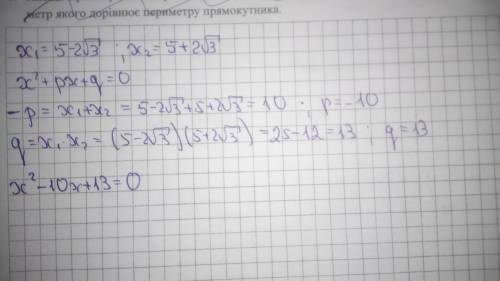 метр якого дорівнює периметру прямокутника.
x₁ = 5-2√3 ; x₂ = 5+2√3
x² + px + q = 0
-p = x₁+x₂ = 5-2√3+5+2√3 = 10 ; p = -10
q = x₁·x₂ = (5-2√3)(5+2√3) = 25-12 = 13 ; q = 13
x² - 10x + 13 = 0